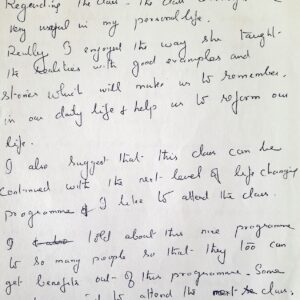 Regarding the class - the class
very useful in my personal life.
Really I enjoyed the way she taught.
the realities with good examples and
stories which will makes us to remember.
in our daily life & help us to reform our
life.
I also suggest that this class can be
continued with the next level of life changing
programme & I like to attend the class.
I told about this nice programme
to so many people so that they too can
get benefits out of this programme. Some
to attend the next class.